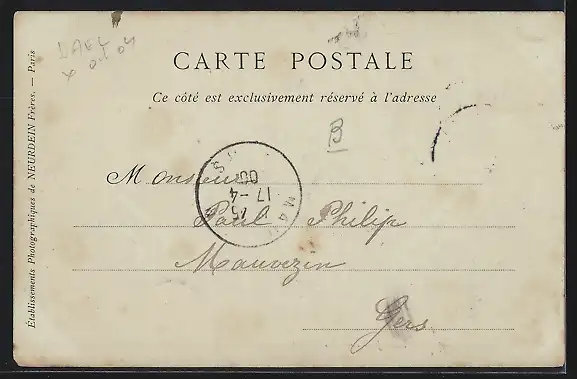 CARTE POSTALE
Ce côté est exclusivement réservé à l'adresse
B
Monsieur
Paul Philip
Mauvezin
Gers
17 -4
00
Établissements Photographiques de NEURDEIN Frères. — Paris